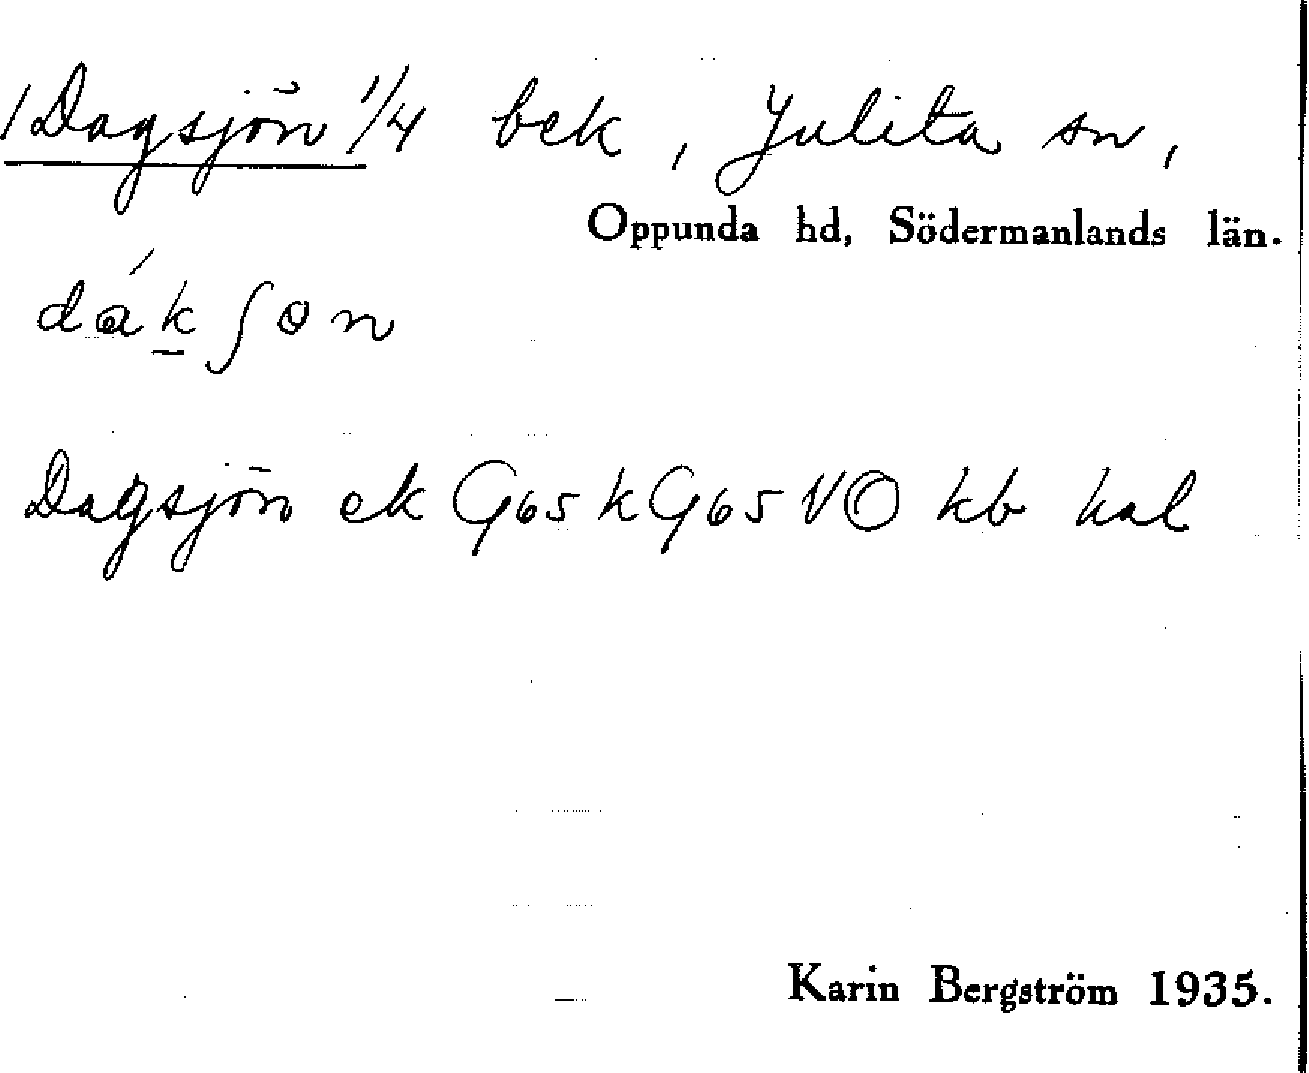 1 Dagsjön 1/4 bek, Julita sn,
Oppunda hd, Södermanlands län.
dák ʃɵn
Dagsjön ek G65 k G65 VO kb hal
Karin Bergström 1935.